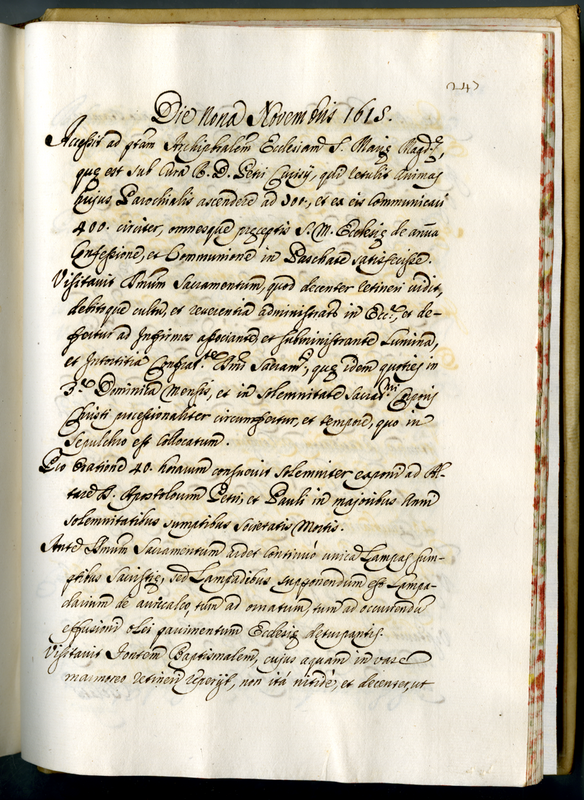 247
Die Nona Novembris 1615.
Accessit ad Archipbralem Ecclesiam S. Mariæ Magd.,
quæ est sub Cura R. D. Petri quid retulit Animas
hujus Parochialis ascendere ad 500., et ex eis Communicari
400. circiter, omnesque præceptis S. M. Ecclesiæ de annua
Confessione, et Communione in Paschate satisfecisse.
Visitavit Sacramentum, quod decenter retineri vidit,
debitoque cultu, et reverentia administrare in Eccl., et de-
ffertur ad Infirmos associante, et subministrante Lumina,
et Intortitia Confrat.te Sacram., quæ idem quoties in
3.a Dominica Mensis, et in solemnitate Sacrat.mi Corporis
Christi processionaliter circumffertur, et tempore, quo in
Sepulchro est collocatum.
Pro Oratione 40. horarum consuevit solemniter exponi ad Al-
tare S. Apostolorum Petri, et Pauli in majoribus Anni
solemnitatibus sumptibus Societatis Mortis.
Ante Sacramentum ardet continuo unica Lampas sum-
ptibus Sacristiæ, sed Lampadibus supponendum est Lampa-
darium de auricalco, tum ad ornatum, tum ad occurrendum
effusioni olei pavimentum Ecclesiæ deturpantis.
Visitavit Fontem Baptismalem, cujus aquam in vase
marmoreo detineri reperijt, non itá nitidè, et decenter, ut